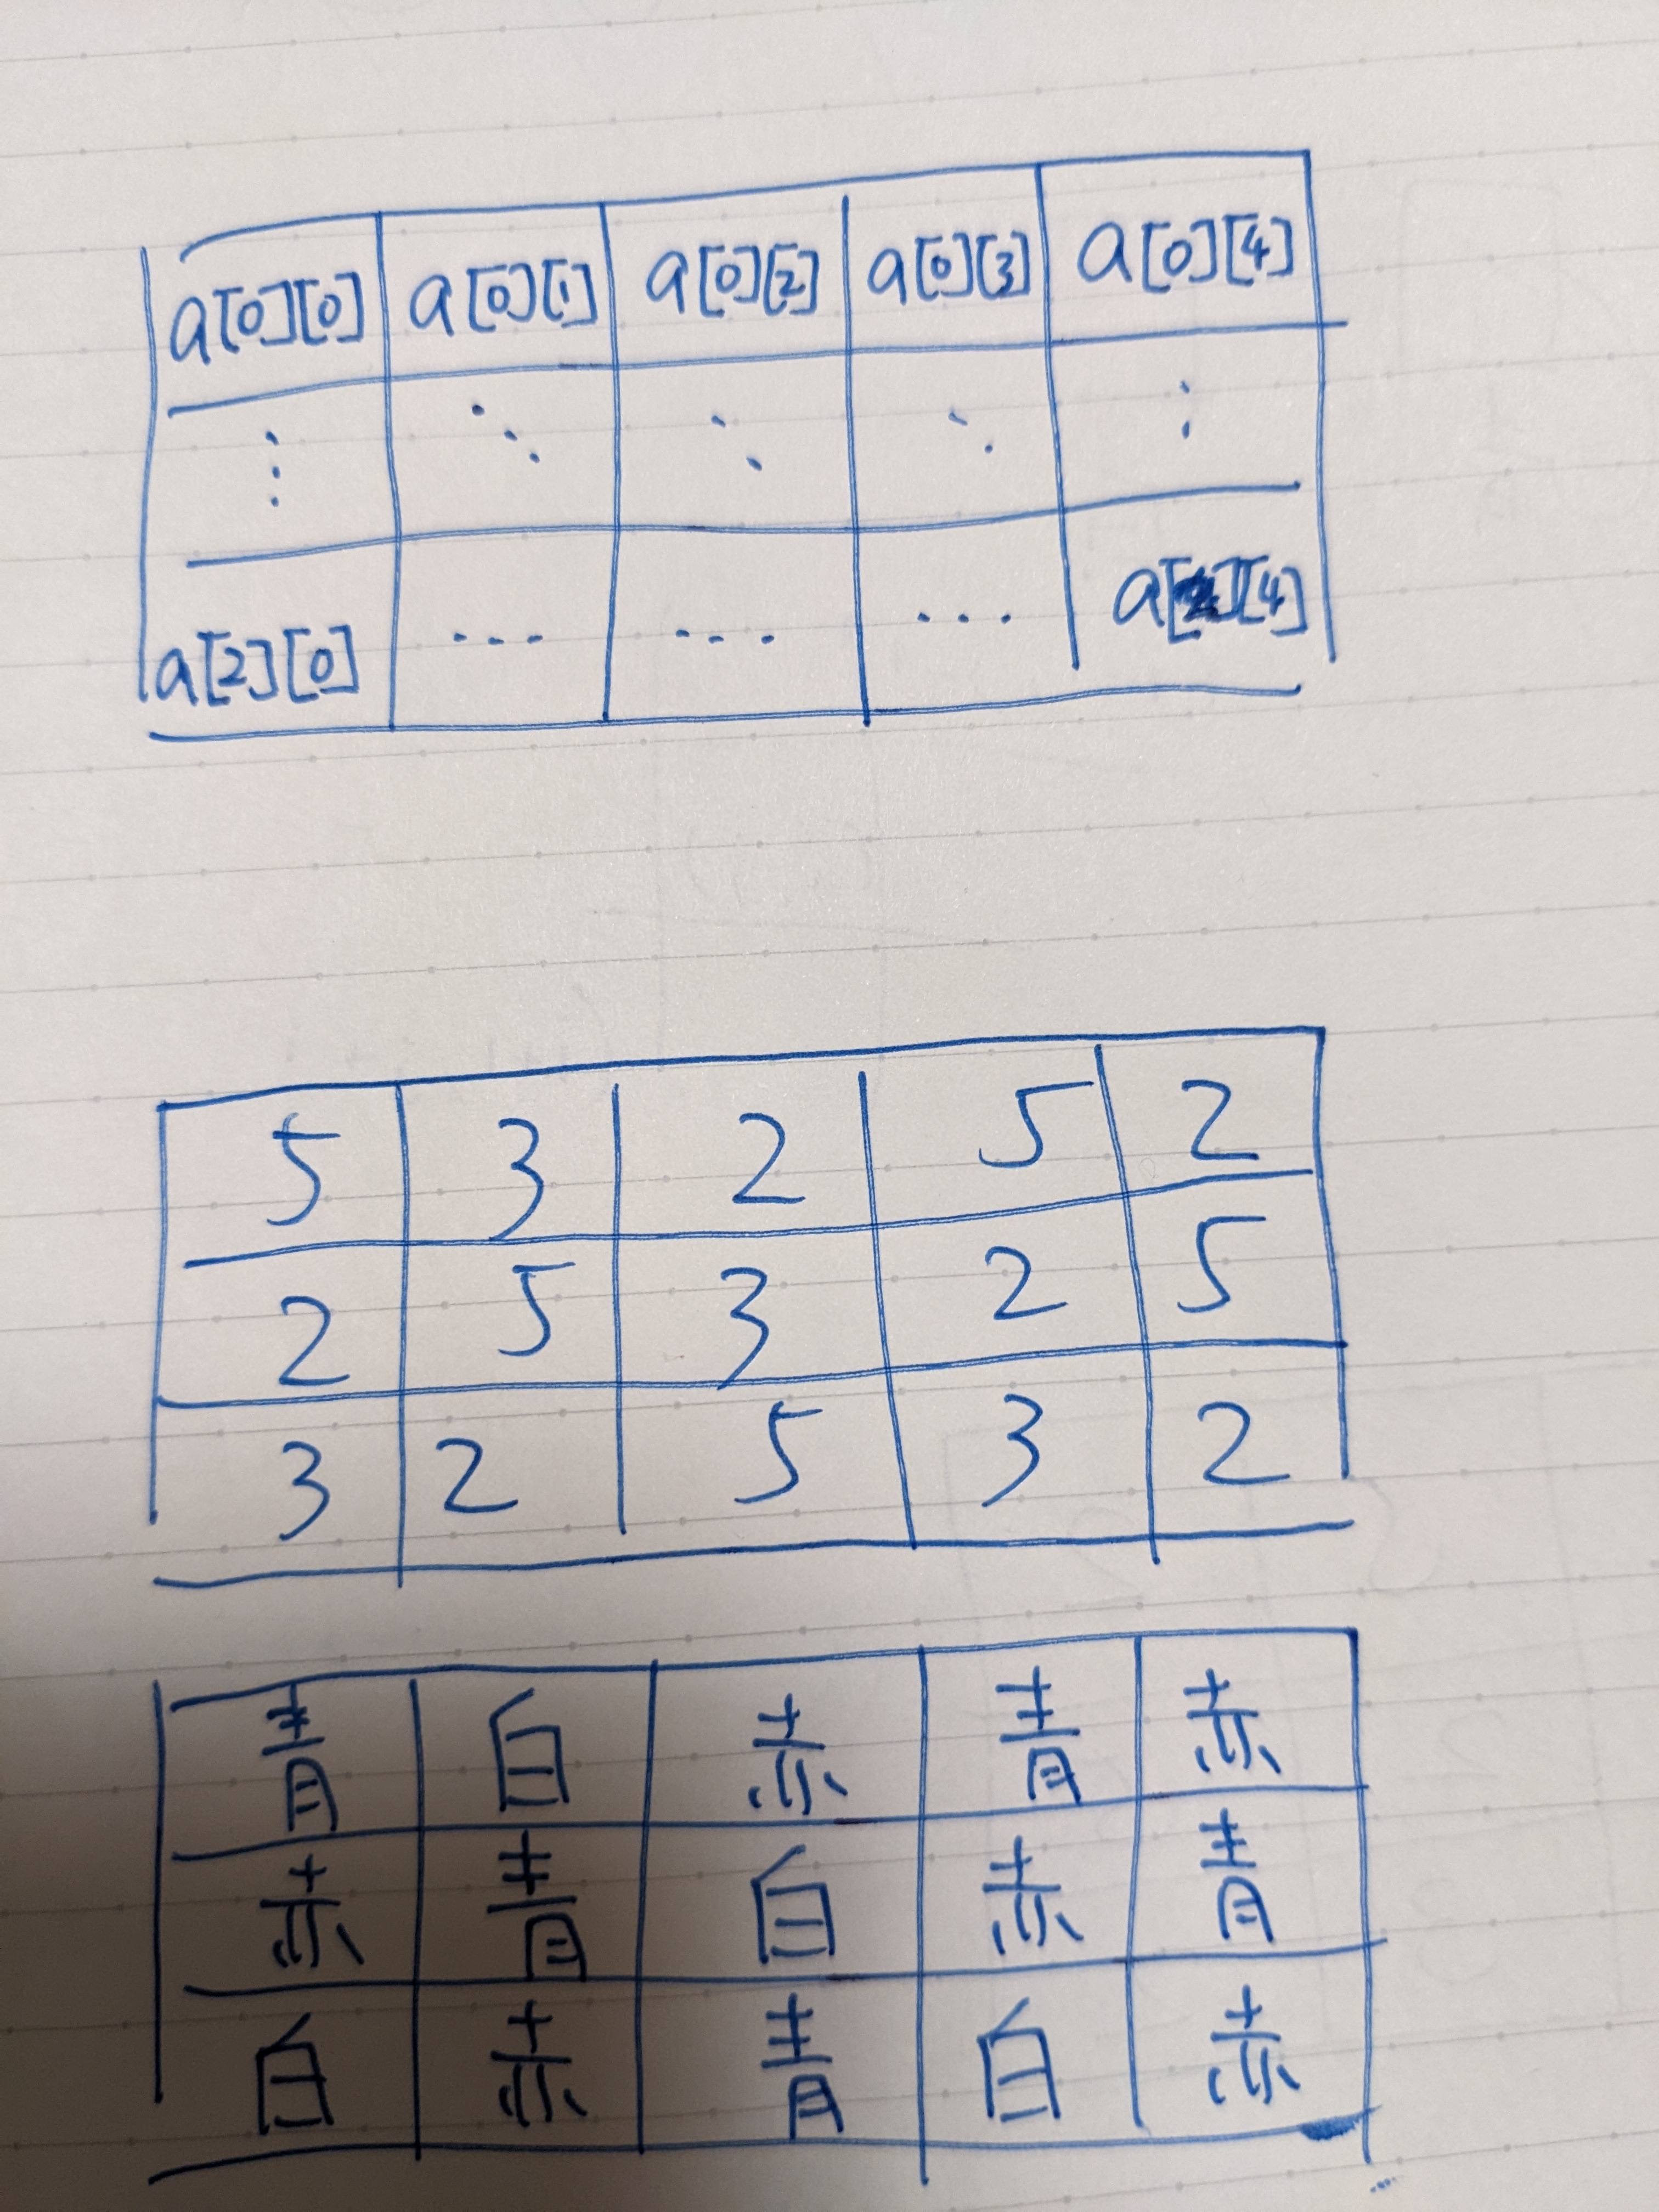 a[0][0] a[0][1] a[0][2] a[0][3] a[0][4]
⋮ ⋱ ⋱ ⋱ ⋮
a[2][0] ... ... ... a[2][4]
5 3 2 5 2
2 5 3 2 5
3 2 5 3 2
青 白 赤 青 赤
赤 青 白 赤 青
白 赤 青 白 赤